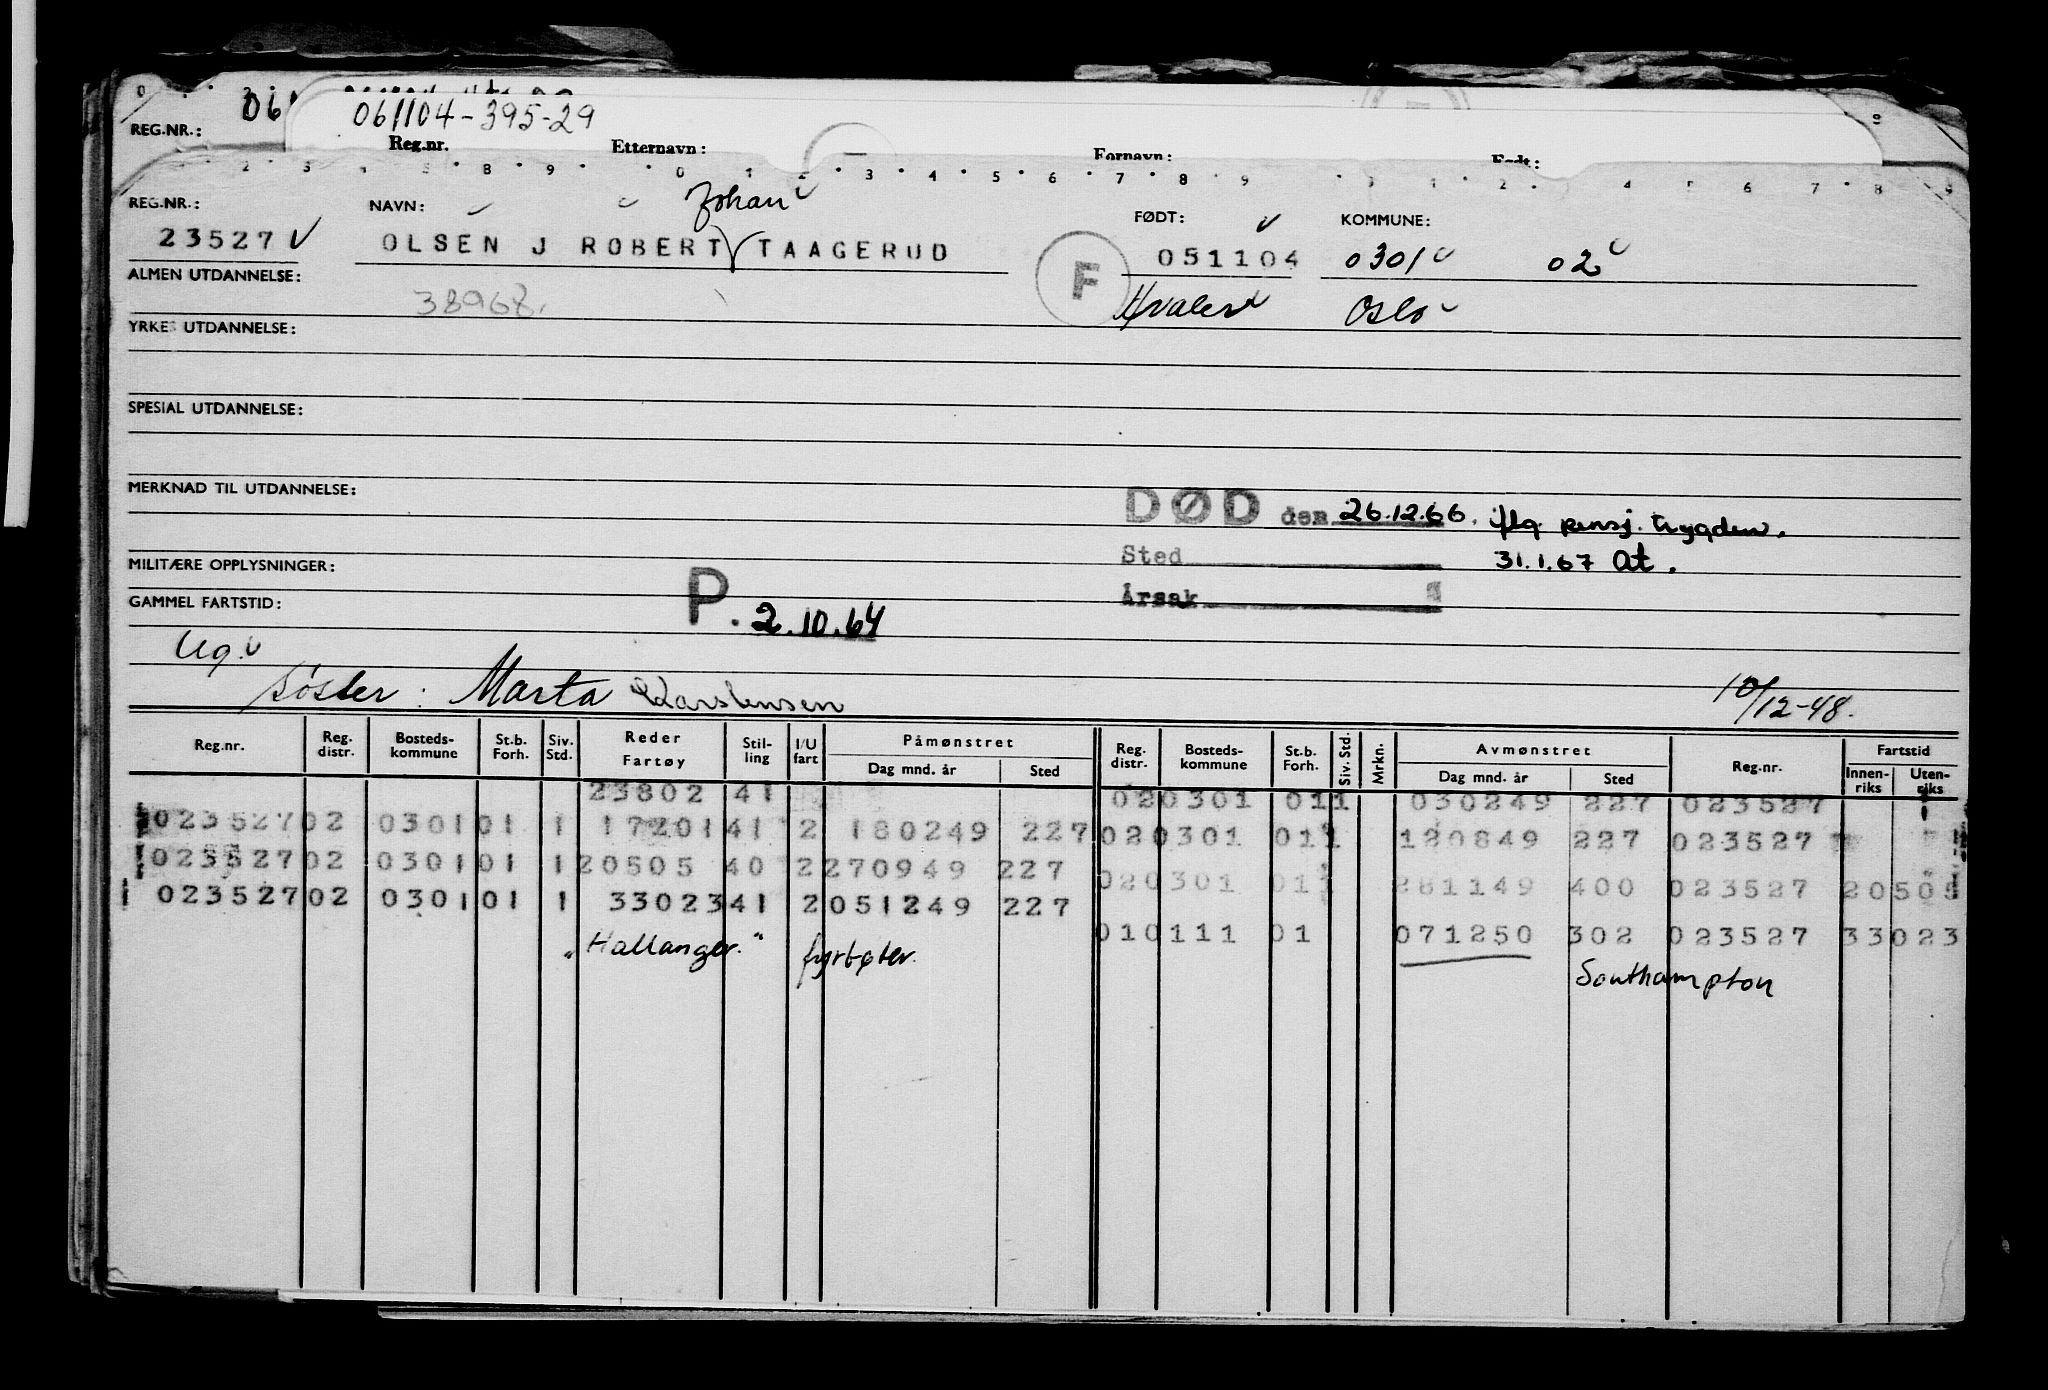 061104-395-29
REG.NR.: 06
Reg.nr. Etternavn: Fornavn: Født:
REG.NR.: NAVN: Johan FØDT: KOMMUNE:
23527 OLSEN J ROBERT TAAGERUD F 051104 0301 02
ALMEN UTDANNELSE: 38968. Hvaler Oslo
YRKES UTDANNELSE:
SPESIAL UTDANNELSE:
MERKNAD TIL UTDANNELSE:
DØD den 26.12.66. iflg. pensj. trygden.
Sted 31.1.67 At.
MILITÆRE OPPLYSNINGER:
Årsak
GAMMEL FARTSTID: P. 2.10.64
Ug.
Søster: Marta Karstensen 10/12-48.
Reg.nr. Reg. distr. Bosteds-kommune St.b. Forh. Siv. Std. Reder Fartøy Stil-ling I/U fart Påmønstret Dag mnd. år Sted Reg. distr. Bosteds-kommune St.b. Forh. Siv. Std. Mrkn. Avmønstret Dag mnd. år Sted Reg.nr. Fartstid Innen-riks Uten-riks
23802 41 02 0301 01 1 030249 227 023527
023527 02 0301 01 1 17201 41 2 180249 227 02 0301 01 1 120849 227 023527
023527 02 0301 01 1 20505 40 2 270949 227 02 0301 01 1 281149 400 023527 20505
023527 02 0301 01 1 33023 41 2 051249 227 01 0111 01 071250 302 023527 33023
"Hallanger." fyrbøter. Southampton